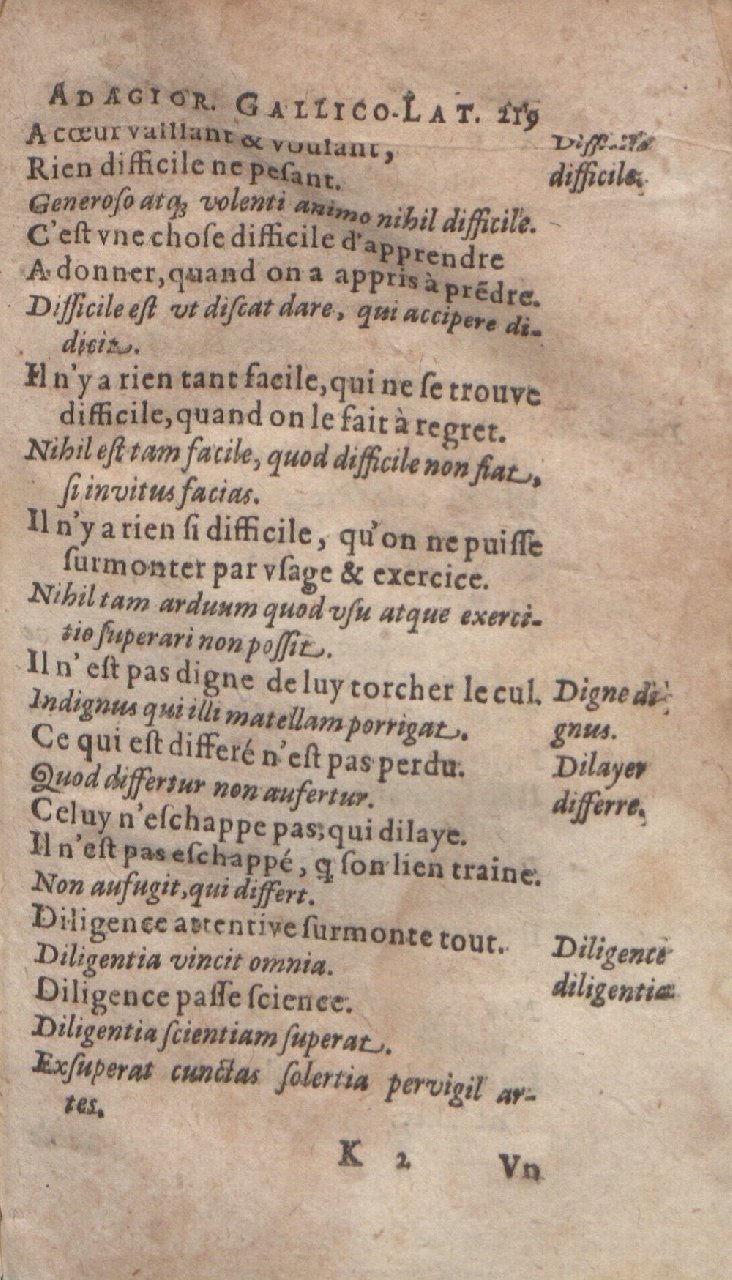 ADAGIOR. GALLICO-LAT. 219
A cœur vaillant & voulant,
Rien difficile ne pesant.
Generoſo atq; volenti animo nihil difficile.
C'eſt vne choſe difficile d'apprendre
A donner, quand on a appris à prẽdre.
Difficile eſt vt diſcat dare, qui accipere di-
dicit.
Il n'y a rien tant facile, qui ne ſe trouve
difficile, quand on le fait à regret.
Nihil eſt tam facile, quod difficile non fiat,
ſi invitus facias.
Il n'y a rien ſi difficile, qu'on ne puiſſe
ſurmonter par vſage & exercice.
Nihil tam arduum quod vſu atque exerci-
tio ſuperari non poſſit.
Il n'eſt pas digne de luy torcher le cul.
Indignus qui illi matellam porrigat.
Ce qui eſt differé n'eſt pas perdu.
Quod differtur non aufertur.
Celuy n'eſchappe pas, qui dilaye.
Il n'est pas eſchappé, q ſon lien traine.
Non aufugit, qui differt.
Diligence attentive ſurmonte tout.
Diligentia vincit omnia.
Diligence paſſe ſcience.
Diligentia ſcientiam ſuperat.
Exſuperat cunctas ſolertia pervigil ar-
tes.
K 2 Vn
difficile.
Digne di-
gnus.
Dilayer
differre.
Diligence
diligentia